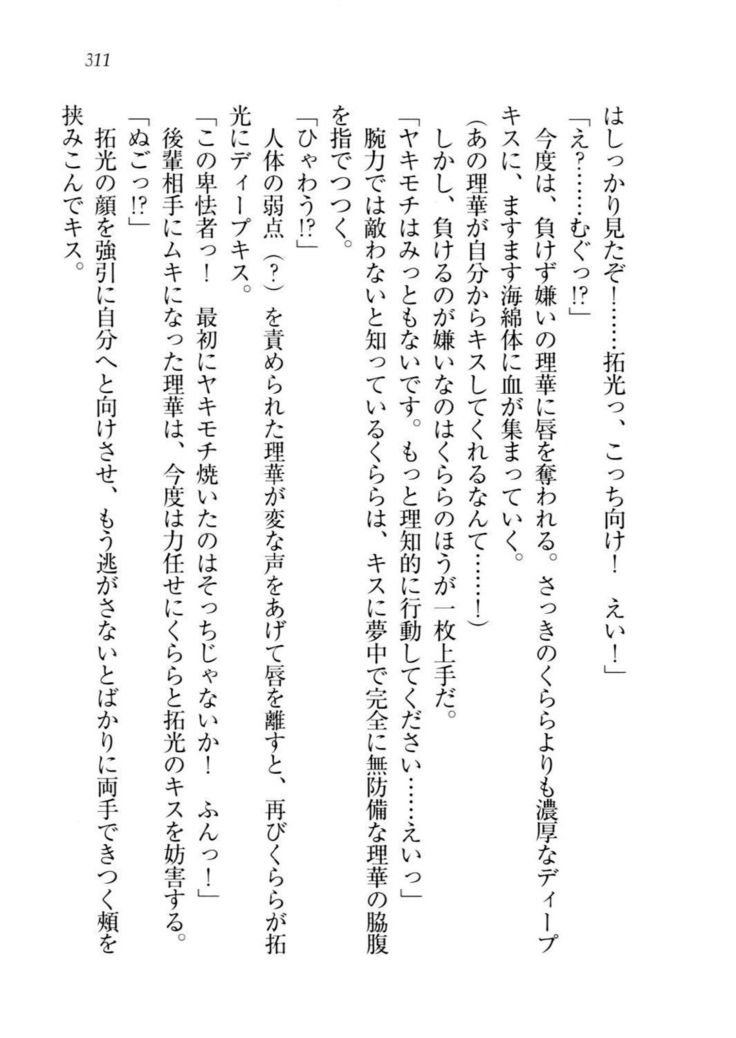 311
はしっかり見たぞ!……拓光っ、こっち向け!　えい!」
「え?……むぐっ!?」
　今度は、負けず嫌いの理華に唇を奪われる。さっきのくららよりも濃厚なディープ
キスに、ますます海綿体に血が集まっていく。
(あの理華が自分からキスしてくれるなんて……!)
　しかし、負けるのが嫌いなのはくららのほうが一枚上手だ。
「ヤキモチはみっともないです。もっと理知的に行動してください……えいっ」
　腕力では敵わないと知っているくららは、キスに夢中で完全に無防備な理華の脇腹
を指でつつく。
「ひゃわう!?」
　人体の弱点(?)を責められた理華が変な声をあげて唇を離すと、再びくららが拓
光にディープキス。
「この卑怯者っ!　最初にヤキモチ焼いたのはそっちじゃないか!　ふんっ!」
　後輩相手にムキになった理華は、今度は力任せにくららと拓光のキスを妨害する。
「ぬごっ!?」
　拓光の顔を強引に自分へと向けさせ、もう逃がさないとばかりに両手できつく頬を
挟みこんでキス。